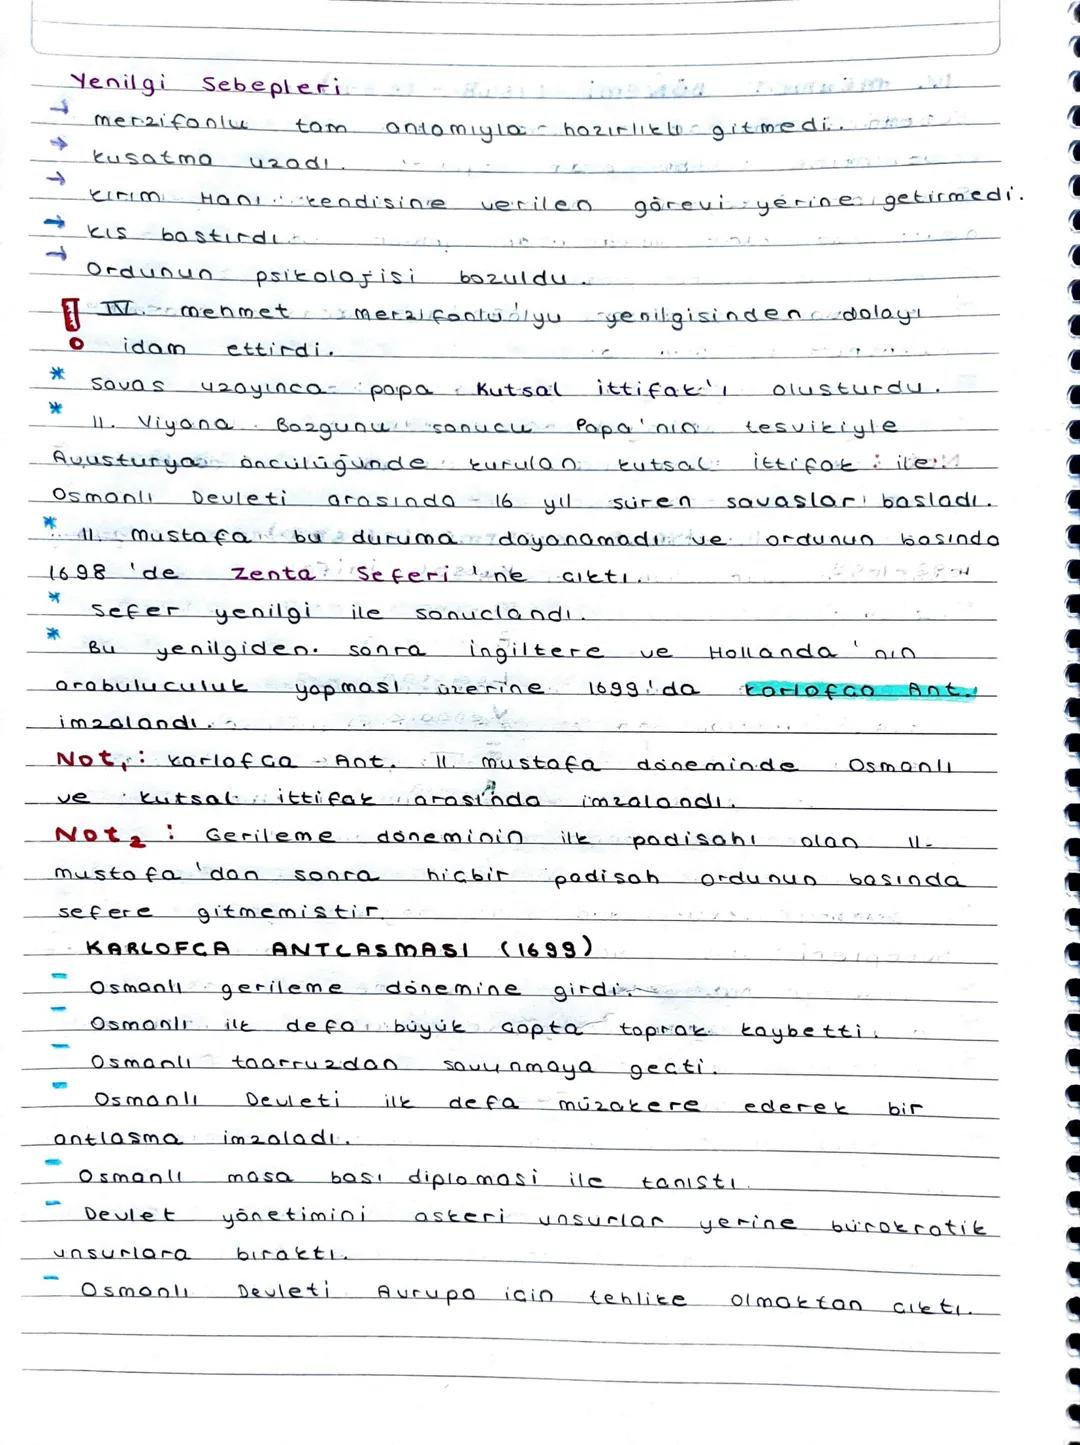 Yenilgi Sebepleri
→ merzifonlu tam anlamıyla hazırlıklı gitmedi.
→ kusatma uzadı.
→ kırım Hanı kendisine verilen görevi yerine getirmedi.
→ kıs bastırdı.
→ Ordunun psikolojisi bozuldu.
! IV. mehmet merzifonlu'yu yenilgisinden dolayı
idam ettirdi.
* Savas uzayınca papa Kutsal ittifak'ı olusturdu.
* II. Viyana Bozgunu sonucu Papa'nın tesvikiyle
Avusturya öncülüğünde kurulan kutsal ittifak ile
Osmanlı Devleti arasında 16 yıl süren savaslar basladı.
* II. mustafa bu duruma dayanamadı ve ordunun basında
1698 'de Zenta Seferi'ne cıktı.
* Sefer yenilgi ile sonuclandı.
* Bu yenilgiden sonra ingiltere ve Hollanda'nın
arabuluculuk yapması üzerine 1699'da karlofca Ant.
imzalandı.
Not₁: karlofca Ant. II. mustafa döneminde Osmanlı
ve kutsal ittifak arasında imzalandı.
Not₂: Gerileme döneminin ilk padisahı olan II.
mustafa'dan sonra hicbir padisah ordunun basında
sefere gitmemistir.
KARLOFCA ANTLASMASI (1699)
- Osmanlı gerileme dönemine girdi.
- Osmanlı ilk defa büyük capta toprak kaybetti.
- Osmanlı taarruzdan savunmaya gecti.
- Osmanlı Devleti ilk defa müzakere ederek bir
antlasma imzaladı.
- Osmanlı masa bası diplomasi ile tanıstı.
- Devlet yönetimini askeri unsurlar yerine bürokratik
unsurlara bıraktı.
- Osmanlı Devleti Avrupa icin tehlike olmaktan cıktı.